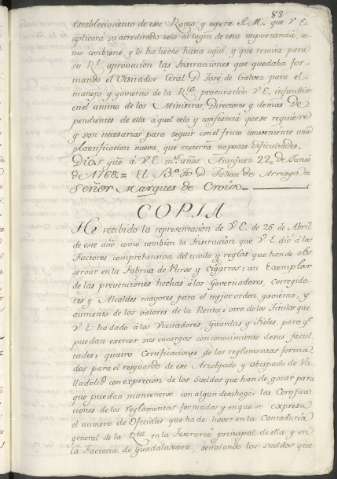 83
Establecimiento de este Ramo, y espera S.M. que V.E.
aplicará su acreditado celo al logro de esta importancia, co-
mo conbiene, y lo ha hecho hasta aquí, y que remita para
su Rl. aprovacion las Instrucciones que quedaba for-
mando el Visitador Gral. Dn. Josef de Galvez para el
manejo y govierno de la
en el animo de los Ministros Directores y demas De-
pendientes de ella aquel celo y confianza que se requiere
y son necesarias para seguir con el fruto conveniente una
planificacion nueva, que encierra mayores dificultades.
Dios gue. á V.E. ms. años Aranjuez 22 de Junio
de 1766 = El Bo. Fr. Dn. Julian de Arriaga =
Señor Marques de Croix
COPIA
He recibido la representacion de V.E. de 26 de Abril
de este año como tambien la Instruccion que V.E. dio á los
Factores comprehensiva del modo y reglas que han de obs-
ervar en la Fabrica de Puros y Cigarros: un Exemplar
de las prevenciones hechas á los Governadores, Corregido-
res y Alcaldes mayores para el mejor orden, govierno, y
aumento de los valores de la Renta: otro de los Titulos que
V.E. ha dado á los Visitadores, Guardas y Fieles, para qe.
puedan exercer sus encargos con conocimiento de sus facul-
tades: quatro Certificaciones de los reglamentos forma-
dos para el resguardo de ese Arzobispado y Obispado de Va-
lladolid con expresion de los Sueldos que han de gozar para
que puedan mantenerse con algun desahogo: las Certificaci-
ones de los reglamentos formados y en que se expresa
el numero de Oficiales que ha de haver en la Contaduria
general de la Rta. en la Tesoreria principal de ella y en
la Factoria de Guadalaxara, señalando los sueldos que